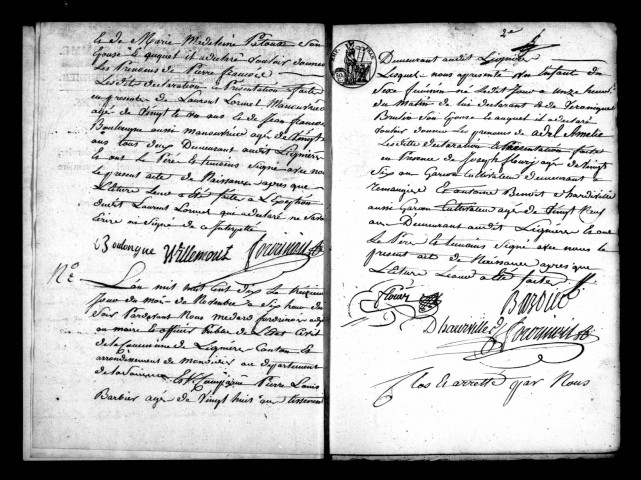 et de Marie Medeleine Petoux son
Epouse le auquel il a declaré vouloir donner
Les Prenoms de Pierre francois
Les dites declaration et Presentation faite
en presente de Laurent Lormet Manouvrier
age de Vingt ans et de Jean francois
Boulenque aussi manouvrier age de
ans tous deux Demeurant audit Lignière
et ont le Père et temoins Signé avec nous
le present acte de Naissance apres que
Lecture Leur a été faite a L'exception
dudit Laurent Lormet que a declaré ne Savoir
Ecrire ni Signé de ce Interpellé
Boulenque Willemont
N°
L'an mil huit cent dix le treizieme
Jour du mois de Novembre a Six heure du
Soir Pardevant Nous medard
au maire et officier Public de L'Etat Civil
de la Commune de Lignière Canton
arrondissement de Mondidier au departement
de la Somme Est Comparu Pierre Louis
Barbier age de Vingt huit an
2e
Demeurant audit Lignière
Lequel nous apresenté un Enfant du
Sexe feminin né Le dit Jour a onze heure
du Matin de lui declarant et de Veronique
Brulin Son Epouse et auquel il a declaré
Vouloir donner Le prenoms de adel Amelie
Les dite declaration et Presentation faite
en Presence de Joseph floury agé de Vingt
Six an Garcon Cultivateur demeurant a
remaugies Et antoine Benoit d'hardivillé
aussi Garcon Cultivateur agé de Vingt Neuf
an Demeurant audit Lignière et ont
Le Père et temoins Signé avec nous le
present acte de Naissance apres que
Lecture Leur a été faite
flouri Barbier
D'hourville
Clos Et arretté par Nous